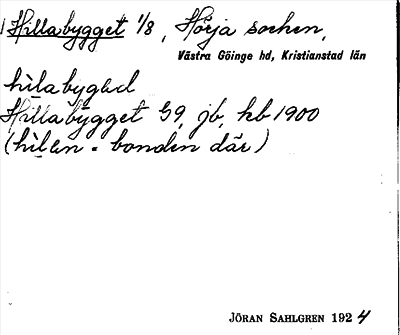 Hillabygget 1/8, Hörja socken,
Västra Göinge hd, Kristianstad län
hilabygəd
Hillabygget G9, jb, hb 1900
(hilen = bonden där)
JÖRAN SAHLGREN 1924